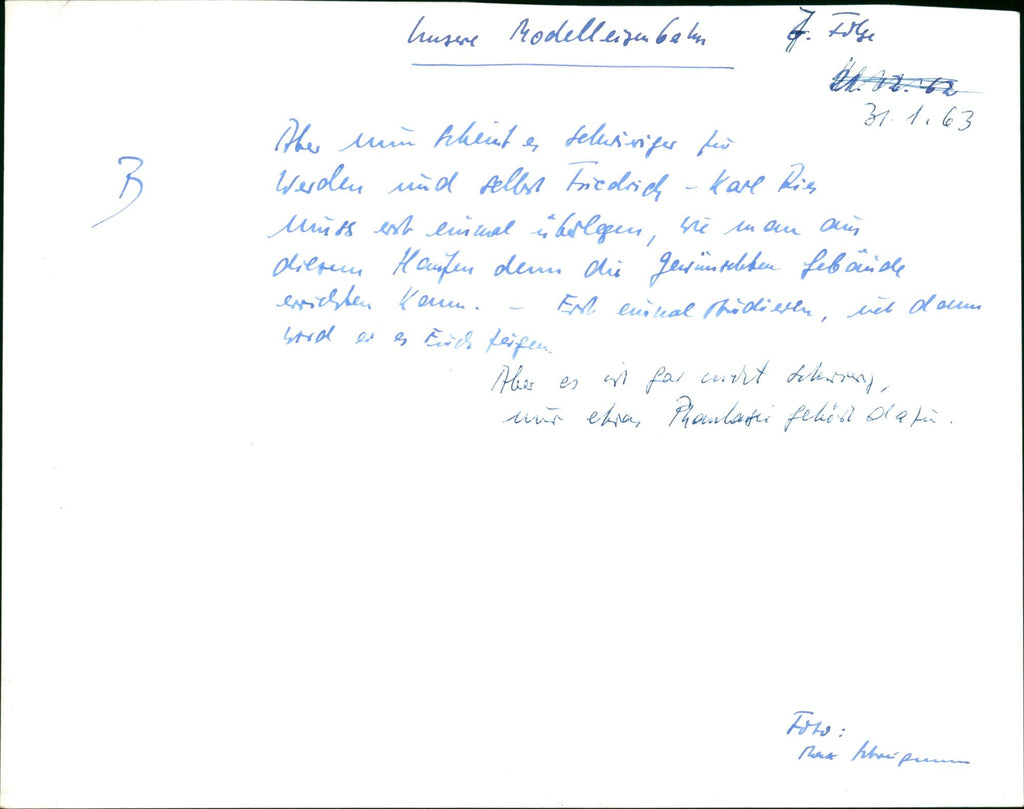 Unsere Modelleisenbahn 7. Folge
31.1.63
B
Aber nun scheint es schwieriger zu
werden und selbst Friedrich-Karl Ries
muss erst einmal überlegen, wie man aus
diesem Haufen denn die gewünschten Gebäude
errichten kann. - Erst einmal studieren, und dann
wird er es Euch zeigen.
Aber es ist gar nicht schwierig,
nur etwas Phantasie gehört dazu.
Foto: